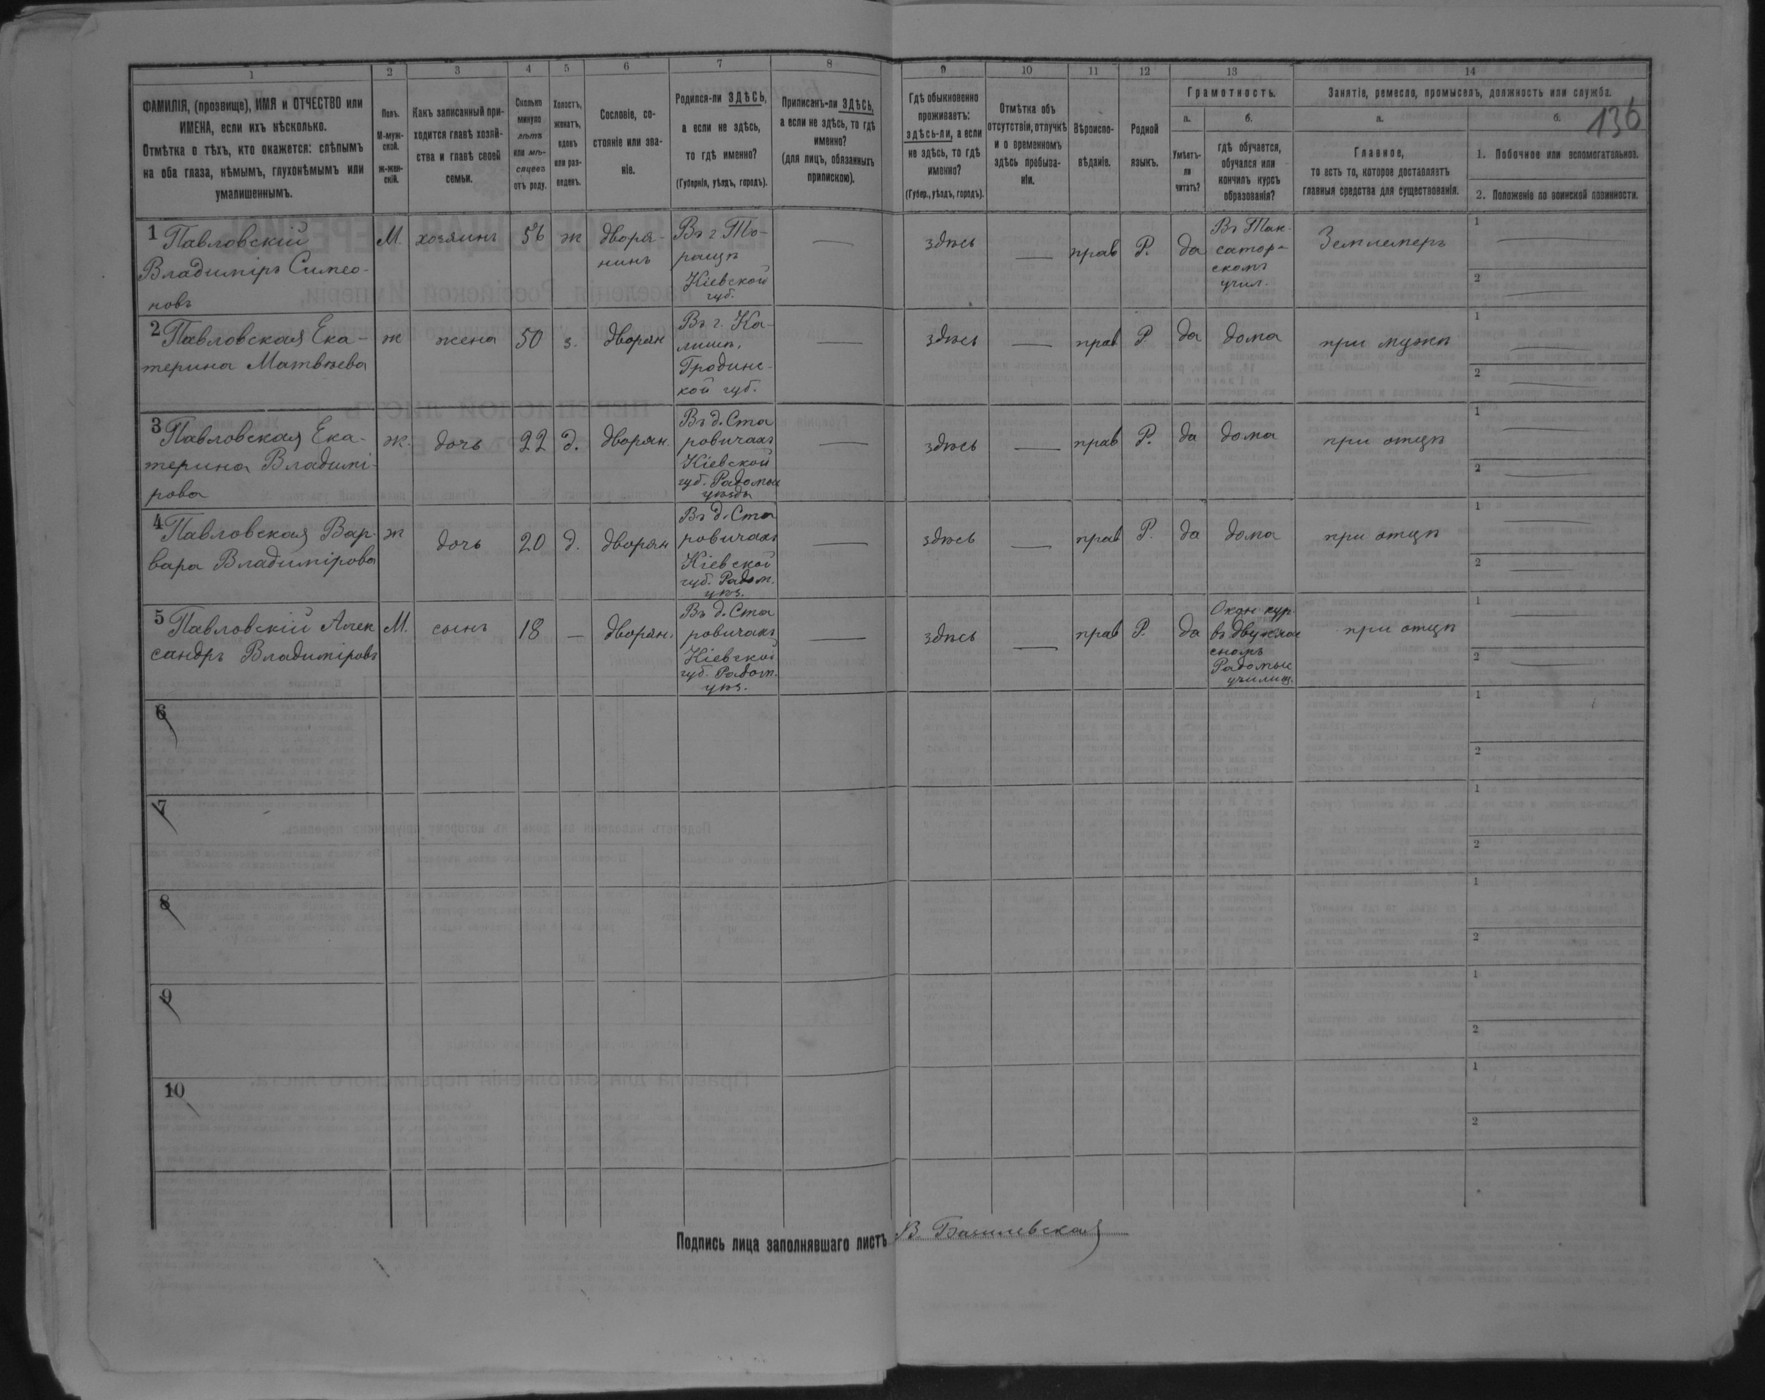 136
1 2 3 4 5 6 7 8 9 10 11 12 13 14
ФАМИЛІЯ, (прозвище), ИМЯ и ОТЧЕСТВО или
ИМЕНА, если ихъ нѣсколько.
Отмѣтка о тѣхъ, кто окажется: слѣпымъ
на оба глаза, нѣмымъ, глухонѣмымъ или
умалишеннымъ.
Полъ.
М-муж-
ской.
Ж-жен-
скій.
Какъ записанный при-
ходится главѣ хозяй-
ства и главѣ своей
семьи.
Сколько
минуло
лѣтъ
или мѣ-
сяцевъ
отъ роду.
Холостъ,
женатъ,
вдовъ
или раз-
веденъ.
Сословіе, со-
стояніе или зва-
ніе.
Родился-ли ЗДѢСЬ,
а если не здѣсь,
то гдѣ именно?
(Губернія, уѣздъ, городъ).
Приписанъ-ли ЗДѢСЬ,
а если не здѣсь, то гдѣ
именно?
(для лицъ, обязанныхъ
припискою).
Гдѣ обыкновенно
проживаетъ:
здѣсь-ли, а если
не здѣсь, то гдѣ
именно?
(Губер., уѣздъ, городъ).
Отмѣтка объ
отсутствіи, отлучкѣ
и о временномъ
здѣсь пребыва-
ніи.
Вѣроиспо-
вѣданіе.
Родной
языкъ.
Грамотность.
а.
Умѣетъ-
ли
читать?
б.
гдѣ обучается,
обучался или
кончилъ курсъ
образованія?
Занятіе, ремесло, промыселъ, должность или служба.
а.
Главное,
то есть то, которое доставляетъ
главныя средства для существованія.
б.
1. Побочное или вспомогательное.
2. Положеніе по воинской повинности.
1 Павловскій
Владиміръ Симео-
новъ
М. хозяинъ 56 ж
дворя-
нинъ
Въ г То-
ращѣ
Кіевской
губ.
—
здѣсь — прав Р. да
Въ Так-
сатор-
скомъ
учил.
Землемеръ
1 —
2 —
2 Павловская Ека-
терина Матвѣева
ж жена 50 з. дворян
Въ г. Ка-
лишѣ,
Гродинс-
кой губ.
—
здѣсь — прав Р да дома при мужѣ
1 —
2 —
3 Павловская Ека-
терина Владимі-
рова
ж. дочь 22 д. дворян.
Въ д. Ста
ровичахъ
Кіевской
губ. Радомыс
уѣзда
—
здѣсь — прав Р. да дома при отцѣ
1 —
2 —
4 Павловская Вар-
вара Владимірова
ж дочь 20 д. дворян
Въ д. Ста
ровичахъ
Кіевской
губ. Радом.
уѣз.
—
здѣсь — прав Р. да дома при отцѣ
1 —
2 —
5 Павловскій Алек
сандръ Владиміровъ
М. сынъ 18 — дворян.
Въ д. Ста
ровичахъ
Кіевской
губ. Радом.
уѣз.
—
здѣсь — прав Р. да
Окон кур.
въ двуклас
сномъ
Радомыс
училищ.
при отцѣ
1
2 —
6
1
2
7
1
2
8
1
2
9
1
2
10
1
2
Подпись лица заполнявшаго листъ В. Базилевская